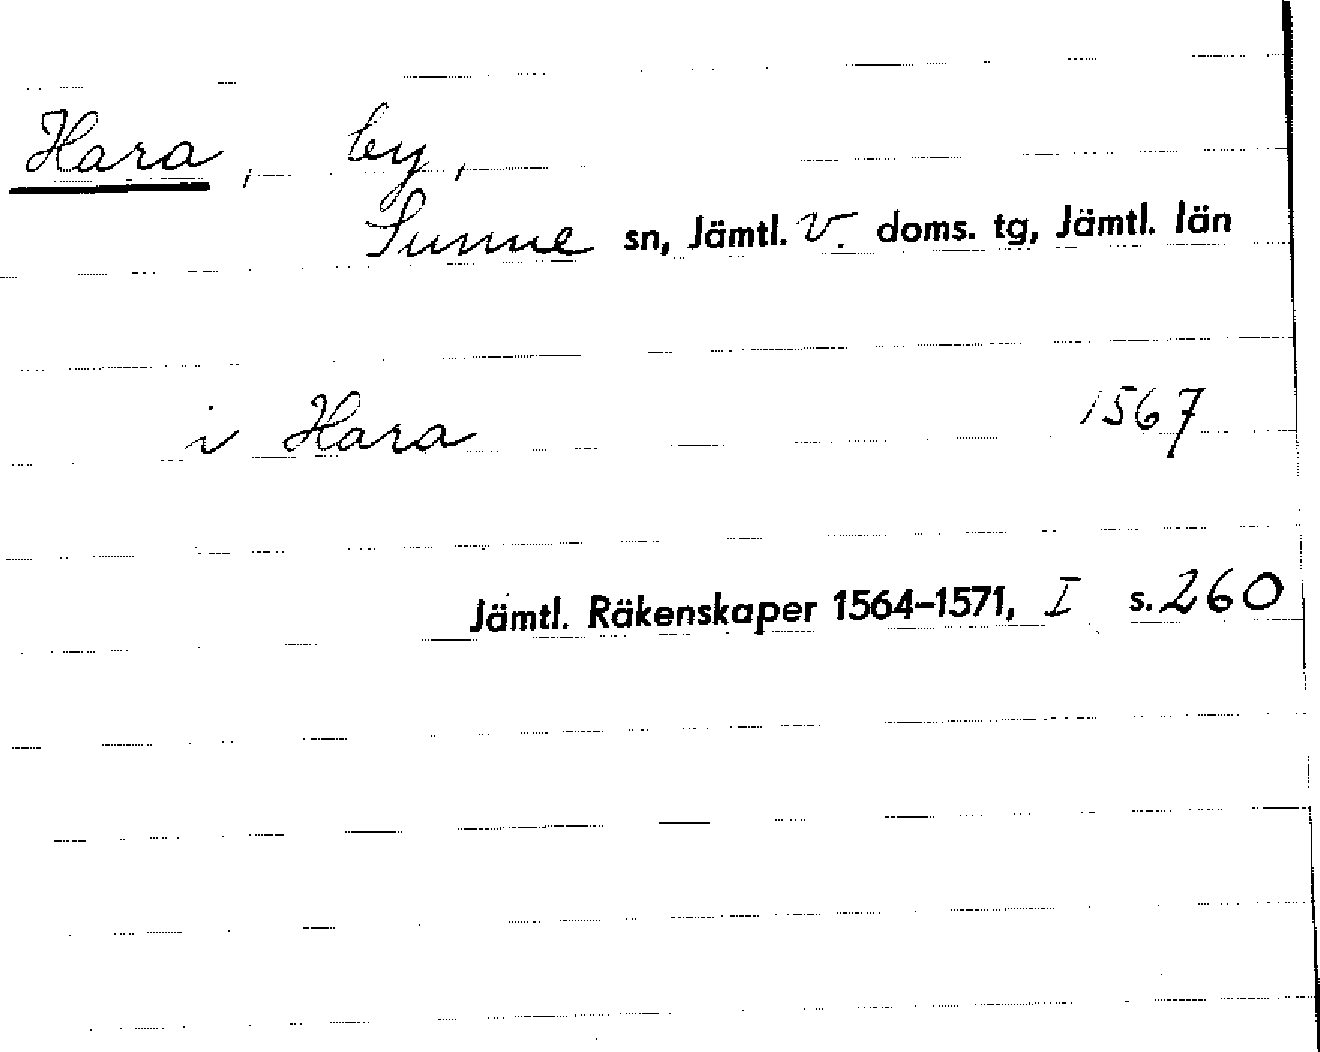 Hara, by,
Sunne sn, Jämtl. V. doms. tg, Jämtl. län
i Hara 1567
Jämtl. Räkenskaper 1564-1571, I s. 260